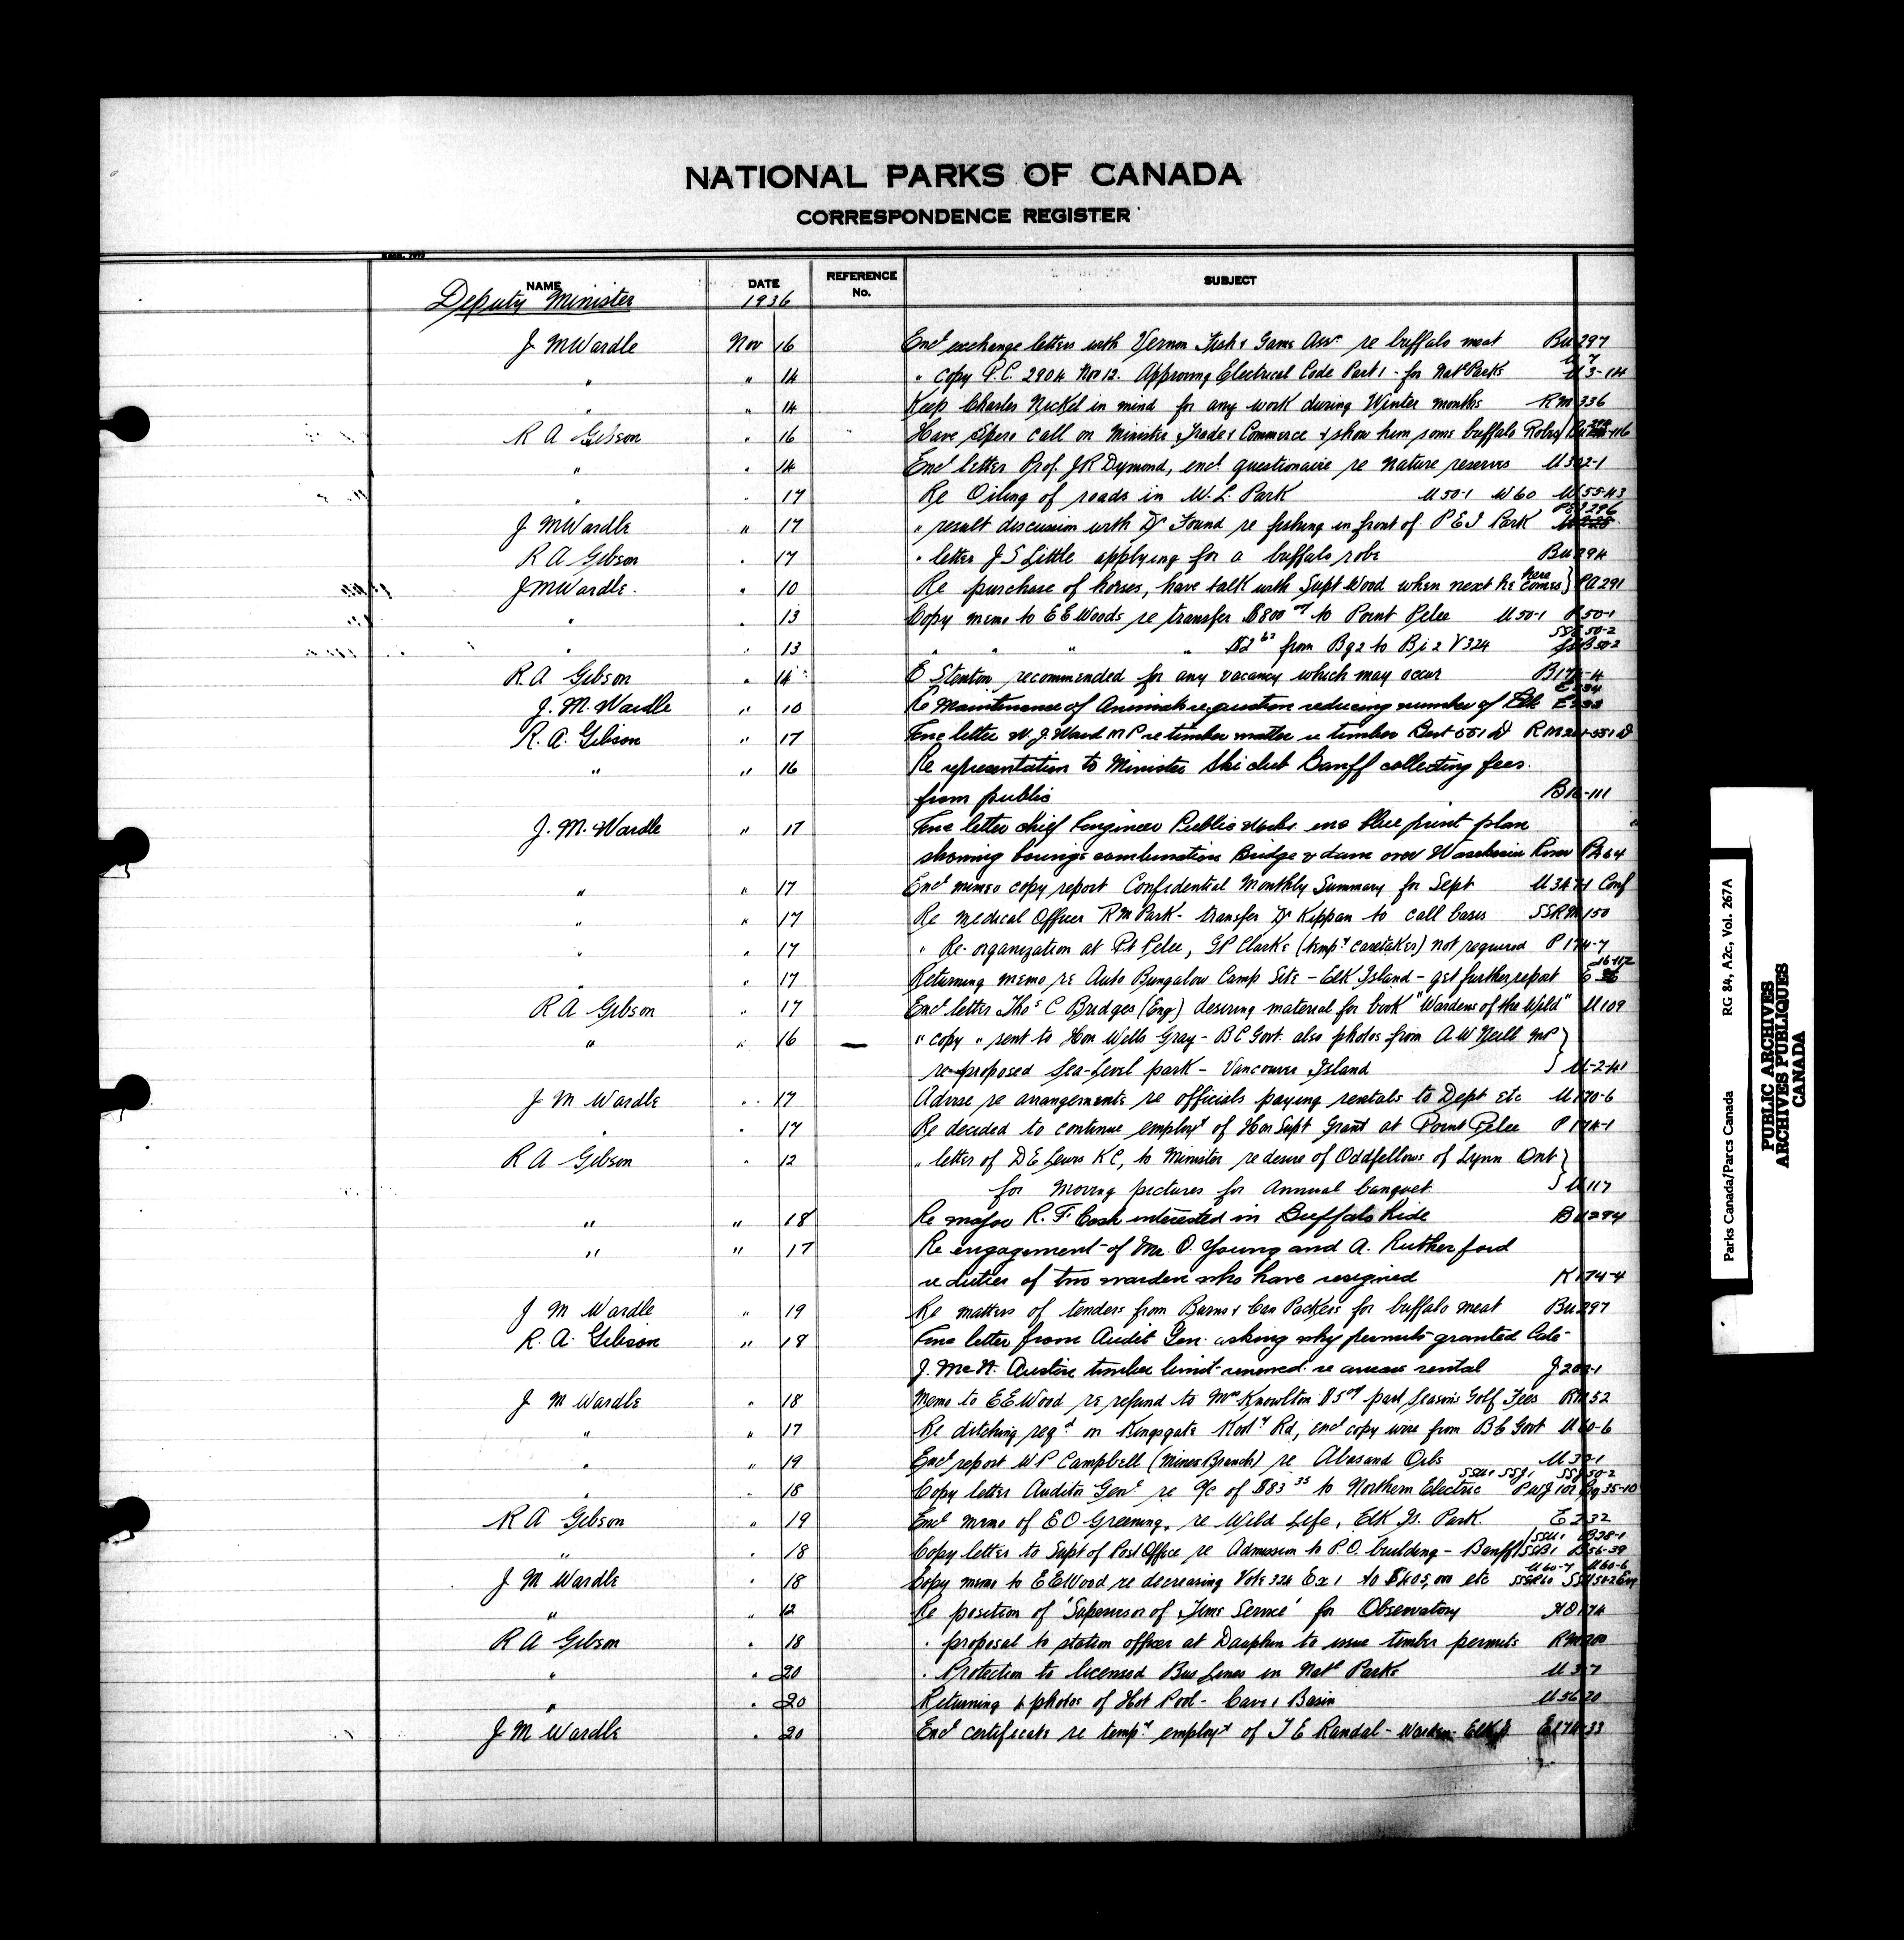 NATIONAL PARKS OF CANADA
CORRESPONDENCE REGISTER
NAME DATE REFERENCE No. SUBJECT
Deputy Minister 1936
J M Wardle Nov 16 Encl exchange letters with Vernon Fish & Game Assn re buffalo meat Bu 297
" " 14 " copy P.C. 2904 Nov 12. Approving Electrical Code Part 1 - for Natl Parks U 3-14
" " 14 Keep Charles Nickel in mind for any work during Winter months RM 336
R A Gibson " 16 Have Spero call on Minister Trade & Commerce & show him some buffalo Robes
" " 14 Encl letter Prof. J R Dymond, encl questionaire re nature reserves U 302-1
" " 17 Re Oiling of roads in W. L. Park U 50-1 W 60 W 55-43
J M Wardle " 17 " result discussion with Dr Found re fishing in front of P E I Park PEI 296
R A Gibson " 17 " letter J S Little applying for a buffalo robe Bu 294
J M Wardle " 10 Re purchase of horses, have talk with Supt Wood when next he comes here PA 291
" " 13 Copy memo to E E Woods re transfer $800 00 to Point Pelee U 50-1 P 50-1
" " 13 " " " " $2 62 from Bg 2 to Bi 2 V 324 50-2
R. A Gibson " 14 E Stenton recommended for any vacancy which may occur B 174-4
J. M. Wardle " 10 Re Maintenance of Animals re question reducing number of Elk E 233
R. A. Gibson " 17 Enc letter W. J. Ward M P re timber matter re timber Bert 551 D
" " 16 Re representation to Minister Ski club Banff collecting fees.
from public B 16-111
J. M. Wardle " 17 Enc letter chief Engineer Public Works enc blue print plan
showing borings combination Bridge & dam over Waskesiu River
" " 17 Encl mimeo copy report Confidential Monthly Summary for Sept U 347-1 Conf
" " 17 Re Medical Officer R M Park - transfer Dr Kippan to call basis SSRM 150
" " 17 " Re-organization at Pt Pelee, G P Clarke (tempy caretaker) not required P 174-7
" " 17 Returning memo re Auto Bungalow Camp Site - Elk Island - get further report E 16-112
R A Gibson " 17 Encl letter Thos C Bridges (Eng) desiring material for book "Wardens of the Wild" U 109
" " 16 " copy " sent to Hon Wells Gray - B C Govt. also photos from A W Neill MP
re proposed Sea-Level park - Vancouver Island U-2-41
J M Wardle " 17 Advise re arrangements re officials paying rentals to Dept etc U 170-6
" " 17 Re decided to continue employt of Hon Supt Grant at Point Pelee P 174-1
R A Gibson " 12 " letter of D E Lewis K C, to Minister re desire of Oddfellows of Lynn Ont
for moving pictures for annual banquet. U 117
" " 18 Re major R. F. Cash interested in Buffalo Hide Bu 294
" " 17 Re engagement of Mr. O. Young and A. Rutherford
re duties of two wardens who have resigned K 174-4
J M Wardle " 19 Re matters of tenders from Burns & Can Packers for buffalo meat Bu 297
R. A. Gibson " 18 Enc letter from Audit Gen. asking why permits granted
J. McN. Austin timber limit renewed re rental J 200-1
J M Wardle " 18 Memo to E E Wood re refund to Mrs Knowlton $5 00 part seasons Golf Fees RM 52
" " 17 Re ditching reqd on Kingsgate Rd, encl copy wire from B C Govt U 60-6
" " 19 Encl report W P Campbell (Mines Branch) re Abasand Oils
" " 18 Copy letter Auditor Genl re a/c of $83 35 to Northern Electric 35-10
R A Gibson " 19 Encl memo of E O Greening. re Wild Life, Elk Is. Park. E 232
" " 18 Copy letter to Supt of Post Office re Admission to P.O. building - Banff B 56-39
J M Wardle " 18 Copy memo to E E Wood re decreasing Vote 324 Ex 1 to $405,000 etc
" " 12 Re position of 'Supervisor of Time Service' for Observatory
R A Gibson " 18 " proposal to station officer at Dauphin to issue timber permits RM 200
" " 20 " Protection to licensed Bus Lines in Natl Parks U 3-7
" " 20 Returning 4 photos of Hot Pool - Cave & Basin U 56-20
J M Wardle " 20 Encl certificate re tempy employt of T E Randal - Warden - Elk
Parks Canada/Parcs Canada RG 84, A2c, Vol. 267A
PUBLIC ARCHIVES
ARCHIVES PUBLIQUES
CANADA